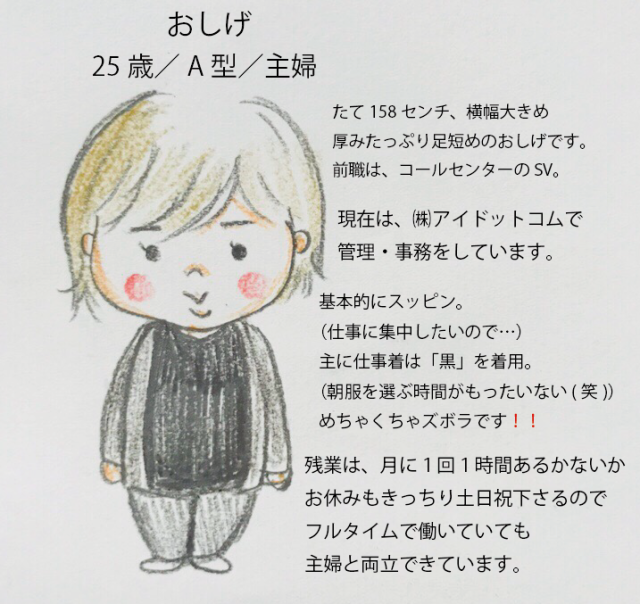 おしげ
25歳／A型／主婦
たて158センチ、横幅大きめ
厚みたっぷり足短めのおしげです。
前職は、コールセンターのSV。
現在は、㈱アイドットコムで
管理・事務をしています。
基本的にスッピン。
（仕事に集中したいので…）
主に仕事着は「黒」を着用。
（朝服を選ぶ時間がもったいない(笑)）
めちゃくちゃズボラです！！
残業は、月に1回1時間あるかないか
お休みもきっちり土日祝下さるので
フルタイムで働いていても
主婦と両立できています。